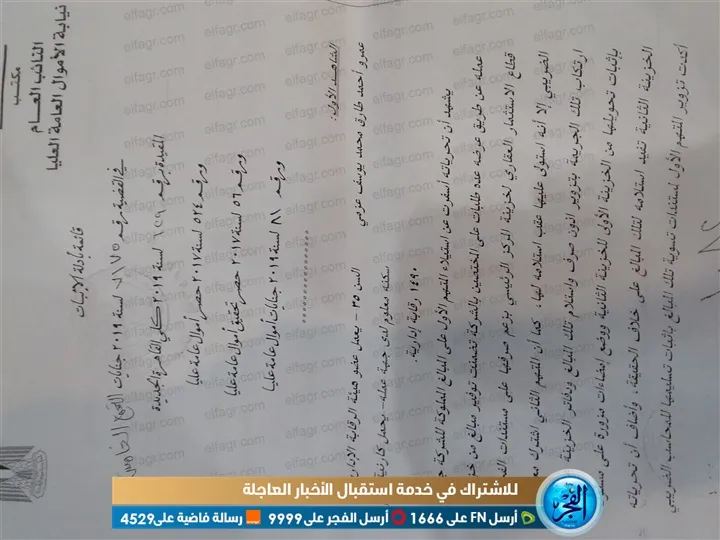 مكتب
النائب العام
نيابة الأموال العامة العليا
قائمة بأدلة الإثبات
لسنة ٢٠١٩ جنايات
لسنة ٢٠١٩ كلي القاهرة الجديدة
ورقم ٥٢٤ لسنة ٢٠١٧ حصر أموال عامة عليا
ورقم ٥٦ لسنة ٢٠١٧ حصر تحقيق أموال عامة عليا
ورقم ٨١ لسنة ٢٠١٩ جنايات أموال عامة عليا
الشاهد الأول:
عمرو أحمد طارق محمد يوسف عزمي
السن ٣٥ - يعمل عضو هيئة الرقابة
سكنه معلوم لدى جهة عمله - يحمل كارنية
١٤٩٠ رقابة إدارية.
يشهد أن تحرياته أسفرت عن استيلاء المتهم الأول على المبالغ المملوكة للشركة
عمله عن طريق عرضه عدة طلبات على المختصين بالشركة تضمنت توفير مبالغ من
قطاع الاستثمار العقاري لخزينة المركز الرئيسي بزعم صرفها على مستفيدات
الضريبي إلا أنه استولى عليها عقب استلامه لها، كما أن المتهم الثاني اشترك
ارتكاب تلك الجريمة بتزوير اذون صرف واستلام تلك المبالغ ودفاتر الخزينة
بإثبات تحويلها من الخزينة الأولى للخزينة الثانية ووضع إمضاءات مزورة على
الخزينة الثانية تفيد استلامه لتلك المبالغ على خلاف الحقيقة، وأضاف أن تحرياته
أكدت تزوير المتهم الأول لمستندات تسوية تلك المبالغ بإثبات تسليمها للمحاسب الضريبي
elfagr.com
للاشتراك في خدمة استقبال الأخبار العاجلة
أرسل FN على 1666 أرسل الفجر على 9999 رسالة فاضية على 4529
الفجر